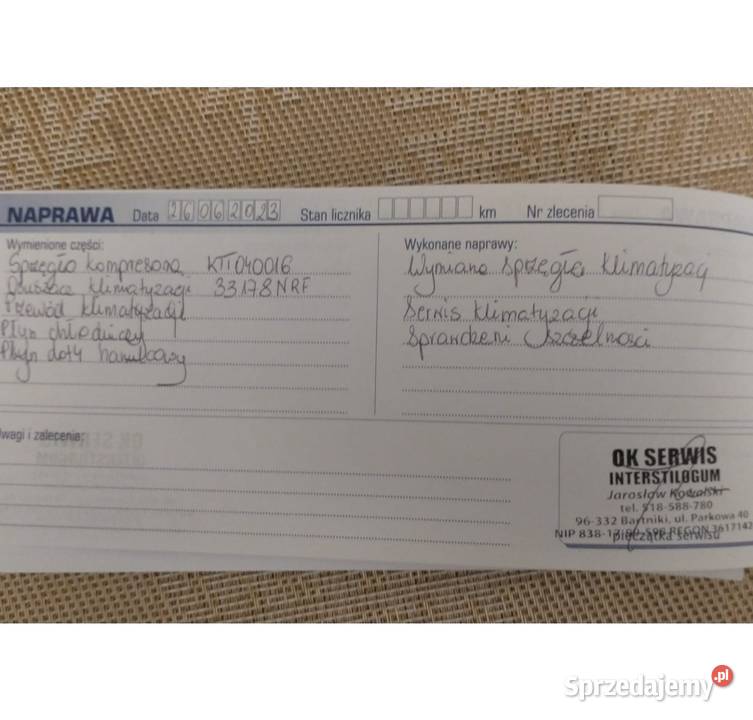 NAPRAWA Data 26062023 Stan licznika km Nr zlecenia
Wymienione części:
Sprzęgło kompresora KTT040016
Osuszacz klimatyzacji 33178NRF
Przewód klimatyzacji
Płyn chłodniczy
Płyn doty hamulcowy
Wykonane naprawy:
Wymiana sprzęgła klimatyzacj
Serwis klimatyzacji
Sprawdzeni szczelności
wagi i zalecenia:
OK SERWIS
INTERSTILOGUM
Jarosław Kowalski
tel. 518-588-780
96-332 Bartniki, ul. Parkowa 40
NIP 838-17 REGON 3617142
pieczątka serwisu
Sprzedajemy.pl